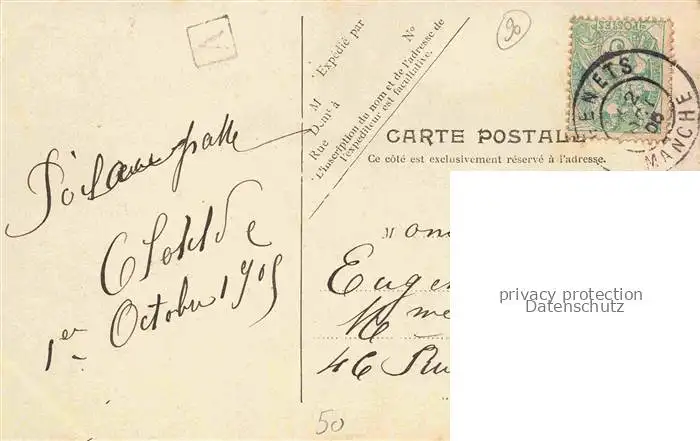 A
90
POSTES
ENETS
2
05
MANCHE
Expédié par
No
M
Demt à
Rue
L'inscription du nom et de l'adresse de
l'expéditeur est facultative.
CARTE POSTALE
Ce côté est exclusivement réservé à l'adresse.
Clotilde
1er Octobre 1905
Mon
Eugen
46 Ru
privacy protection
Datenschutz
50